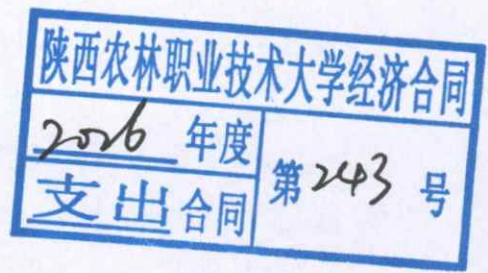 陕西农林职业技术大学经济合同
2026 年度
支出合同
第 243 号